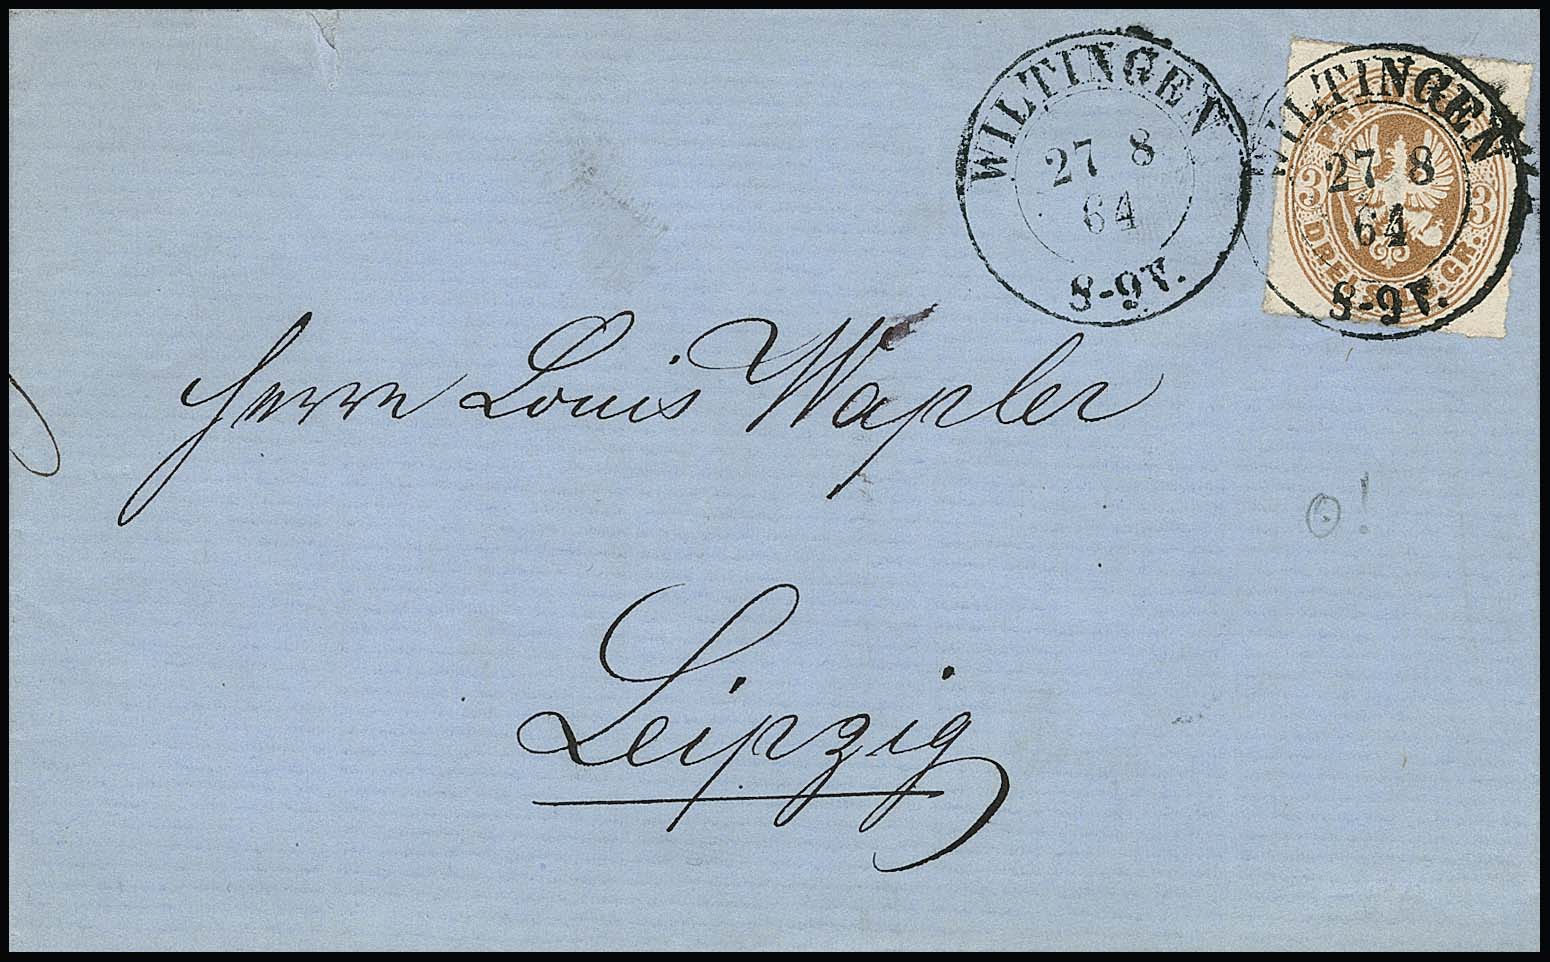 WILTINGEN
27 8
64
8-9V.
WILTINGEN
27 8
64
8-9V.
3 3
DREI SILB. GR.
Herrn Louis Wapler
Leipzig